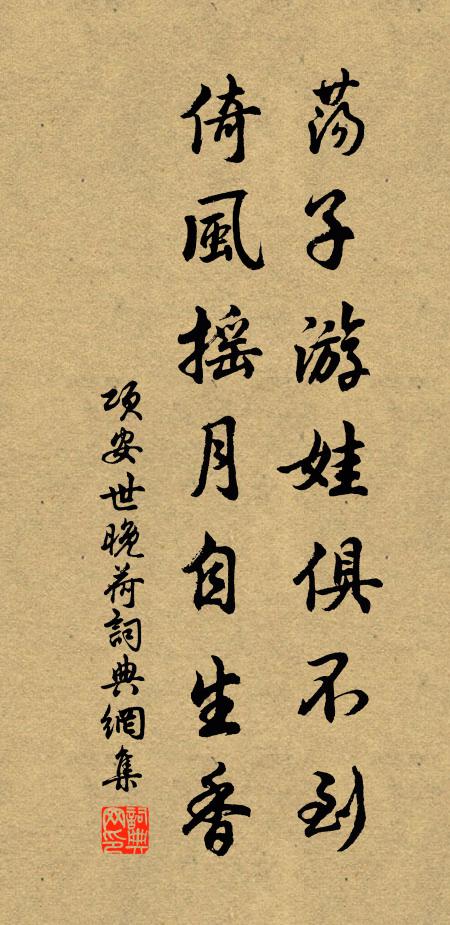 荡子游娃俱不到
倚風摇月自生香
项安世晚荷詞典網集
詞典网印